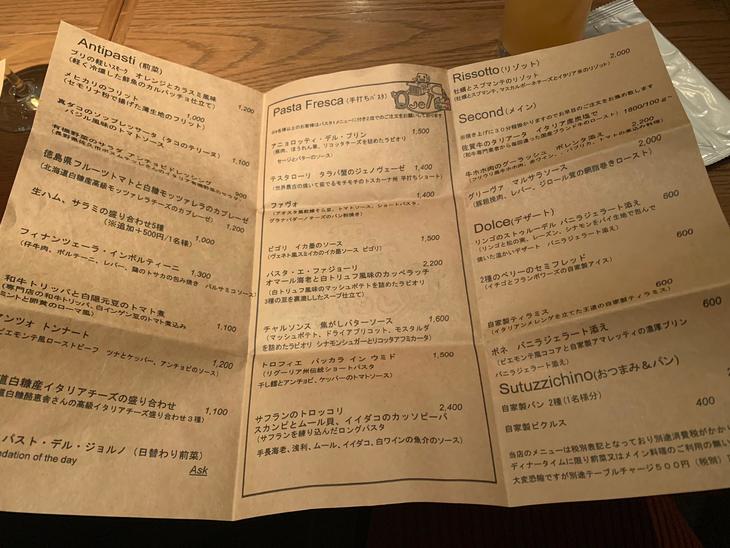 Antipasti (前菜)
ブリの軽いスモーク オレンジとカラスミ風味
(軽く冷燻した鮮魚のカルパッチョ仕立て) 1,200
メヒカリのフリット 1,000
(セモリナ粉で揚げた蒲生地のフリット)
真ダコのソップレッサータ (タコのテリーヌ)
バジル風味のトマトソース 1,100
有機野菜のサラダ アンチョビドレッシング
900
徳島県フルーツトマトと白糠モッツァレラのカプレーゼ
(北海道白糠産高級モッツァレラチーズのカプレーゼ) 1,200
生ハム、サラミの盛り合わせ5種
(※追加+500円/1名様) 1,000
フィナンツェーラ・インボルティーニ 1,300
(仔牛肉、ポルチーニ、レバー、鶏のトサカの包み焼き バルサミコソース)
和牛トリッパと白隠元豆のトマト煮
(専門店の和牛トリッパ、白インゲン豆のトマト煮込み
ミントと卵黄のローマ風) 1,100
ンツォ トンナート
ピエモンテ風ローストビーフ ツナとケッパー、アンチョビのソース) 1,200
道白糠産イタリアチーズの盛り合わせ
道白糠酪恵舎さんの高級イタリアチーズ盛り合わせ3種) 1,100
パスト・デル・ジョルノ (日替わり前菜)
ndation of the day
Ask
Pasta Fresca (手打ちパスタ)
アニョロッティ・デル・プリン 1,500
(豚肉、ほうれん草、リコッタチーズを詰めたラビオリ
セージとバターのソース)
テスタローリ タラバ蟹のジェノヴェーゼ 1,400
(世界最古の焼いて茹でるモチモチのトスカーナ州 平打ちショート)
ファヴォ 1,400
(アオスタ風乾燥そら豆、トマトソース、ショートパスタ、
グラナパダーノチーズのパン粉焼き)
ビゴリ イカ墨のソース 1,500
(ヴェネト風スミイカのイカ墨ソース ビゴリ)
パスタ・エ・ファジョーリ 2,200
オマール海老と白トリュフ風味のカッペラッチ
(白トリュフ風味のマッシュポテトを詰めたラビオリ
3種の豆を裏漉ししたスープ仕立て)
チャルソンス 焦がしバターソース 1,600
(マッシュポテト、ドライアプリコット、モスタルダ
を詰めたラビオリ シナモンシュガーとリコッタアフミカータ)
トロフィエ バッカラ イン ウミド 1,500
(リグーリア州伝統ショートパスタ
干し鱈とアンチョビ、ケッパーのトマトソース)
サフランのトロッコリ 2,400
スカンピとムール貝、イイダコのカッソピーパ
(サフランを練り込んだロングパスタ
手長海老、浅利、ムール、イイダコ、白ワインの魚介のソース)
Rissotto(リゾット)
牡蠣とスプマンテのリゾット 2,000
(牡蠣とスプマンテ、マスカルポーネチーズとイタリア米のリゾット)
Second(メイン)
※焼き上げに30分程掛かりますのでお早目のご注文をお薦め致します
佐賀牛のタリアータ イタリア産岩塩で 1800/100g~
牛ホホ肉のグーラッシュ ポレンタ添え 2,200
グリーヴァ マルサラソース 2,000
(豚粗挽肉、レバー、ジロール茸の網脂巻きロースト)
Dolce(デザート)
リンゴのストゥルーデル バニラジェラート添え 600
(リンゴと松の実、レーズン、シナモンをパイ生地で包んで
焼いた温かいデザート バニラジェラート添え)
2種のベリーのセミフレッド 600
(イチゴとフランボワーズの自家製アイス)
自家製ティラミス 600
(イタリアンメレンゲを立てた王道の自家製ティラミス)
ボネ バニラジェラート添え 600
(ピエモンテ風ココアと自家製アマレッティの濃厚プリン
バニラジェラート添え)
Sutuzzichino(おつまみ&パン)
自家製パン 2種(1名様分)
自家製ピクルス 400
当店のメニューは税別表記となっており別途消費税がかか
ディナータイムに限り前菜又はメイン料理のご利用の無い
大変恐縮ですが別途テーブルチャージ500円(税別)